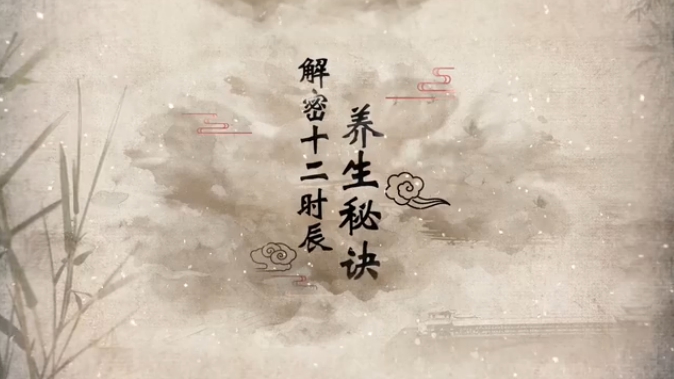 解密十二时辰
养生秘诀